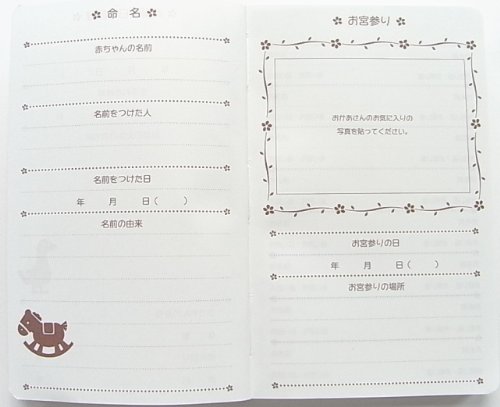 命名
赤ちゃんの名前
名前をつけた人
名前をつけた日
年 月 日( )
名前の由来
お宮参り
おかあさんのお気に入りの
写真を貼ってください。
お宮参りの日
年 月 日( )
お宮参りの場所